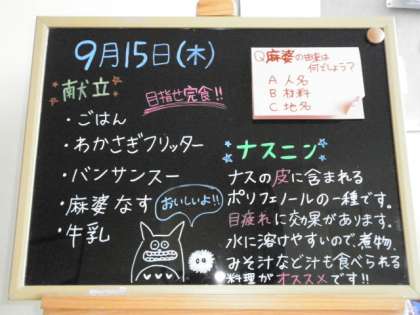 9月15日(木)
献立
目指せ完食!!
・ごはん
・わかさぎフリッター
・バンサンスー
・麻婆なす
・牛乳
おいしいよ!!
Q麻婆の由来は
何でしょう?
A 人名
B 材料
C 地名
ナスニン
ナスの皮に含まれる
ポリフェノールの一種です。
目疲れに効果があります。
水に溶けやすいので、煮物、
みそ汁など汁も食べられる
料理がオススメです!!